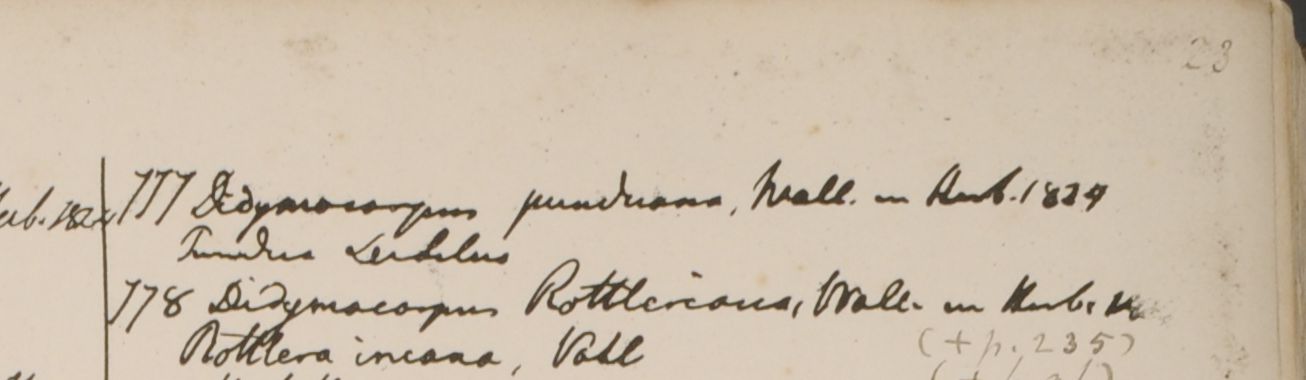 23
777 Didymocarpus punduana, Wall. in Herb. 1829
778 Didymocarpus Rottleriana, Wall. in Herb.
Rottlera incana, Vahl
(+ p. 235)